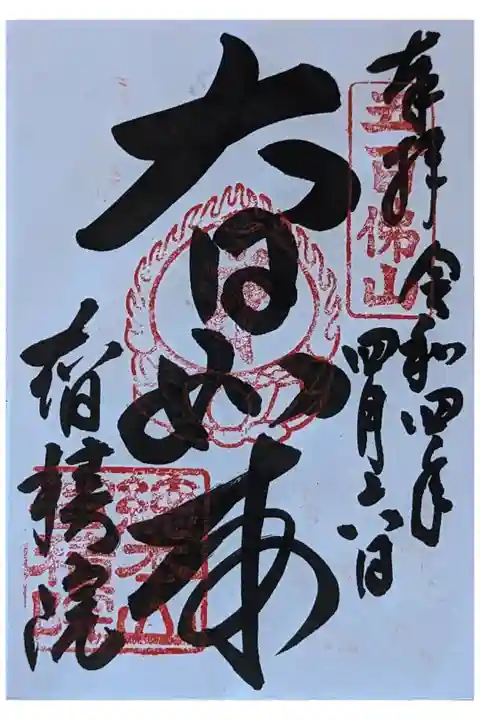 奉拝 令和四年
四月六日
五百佛山
大日如来
智積院